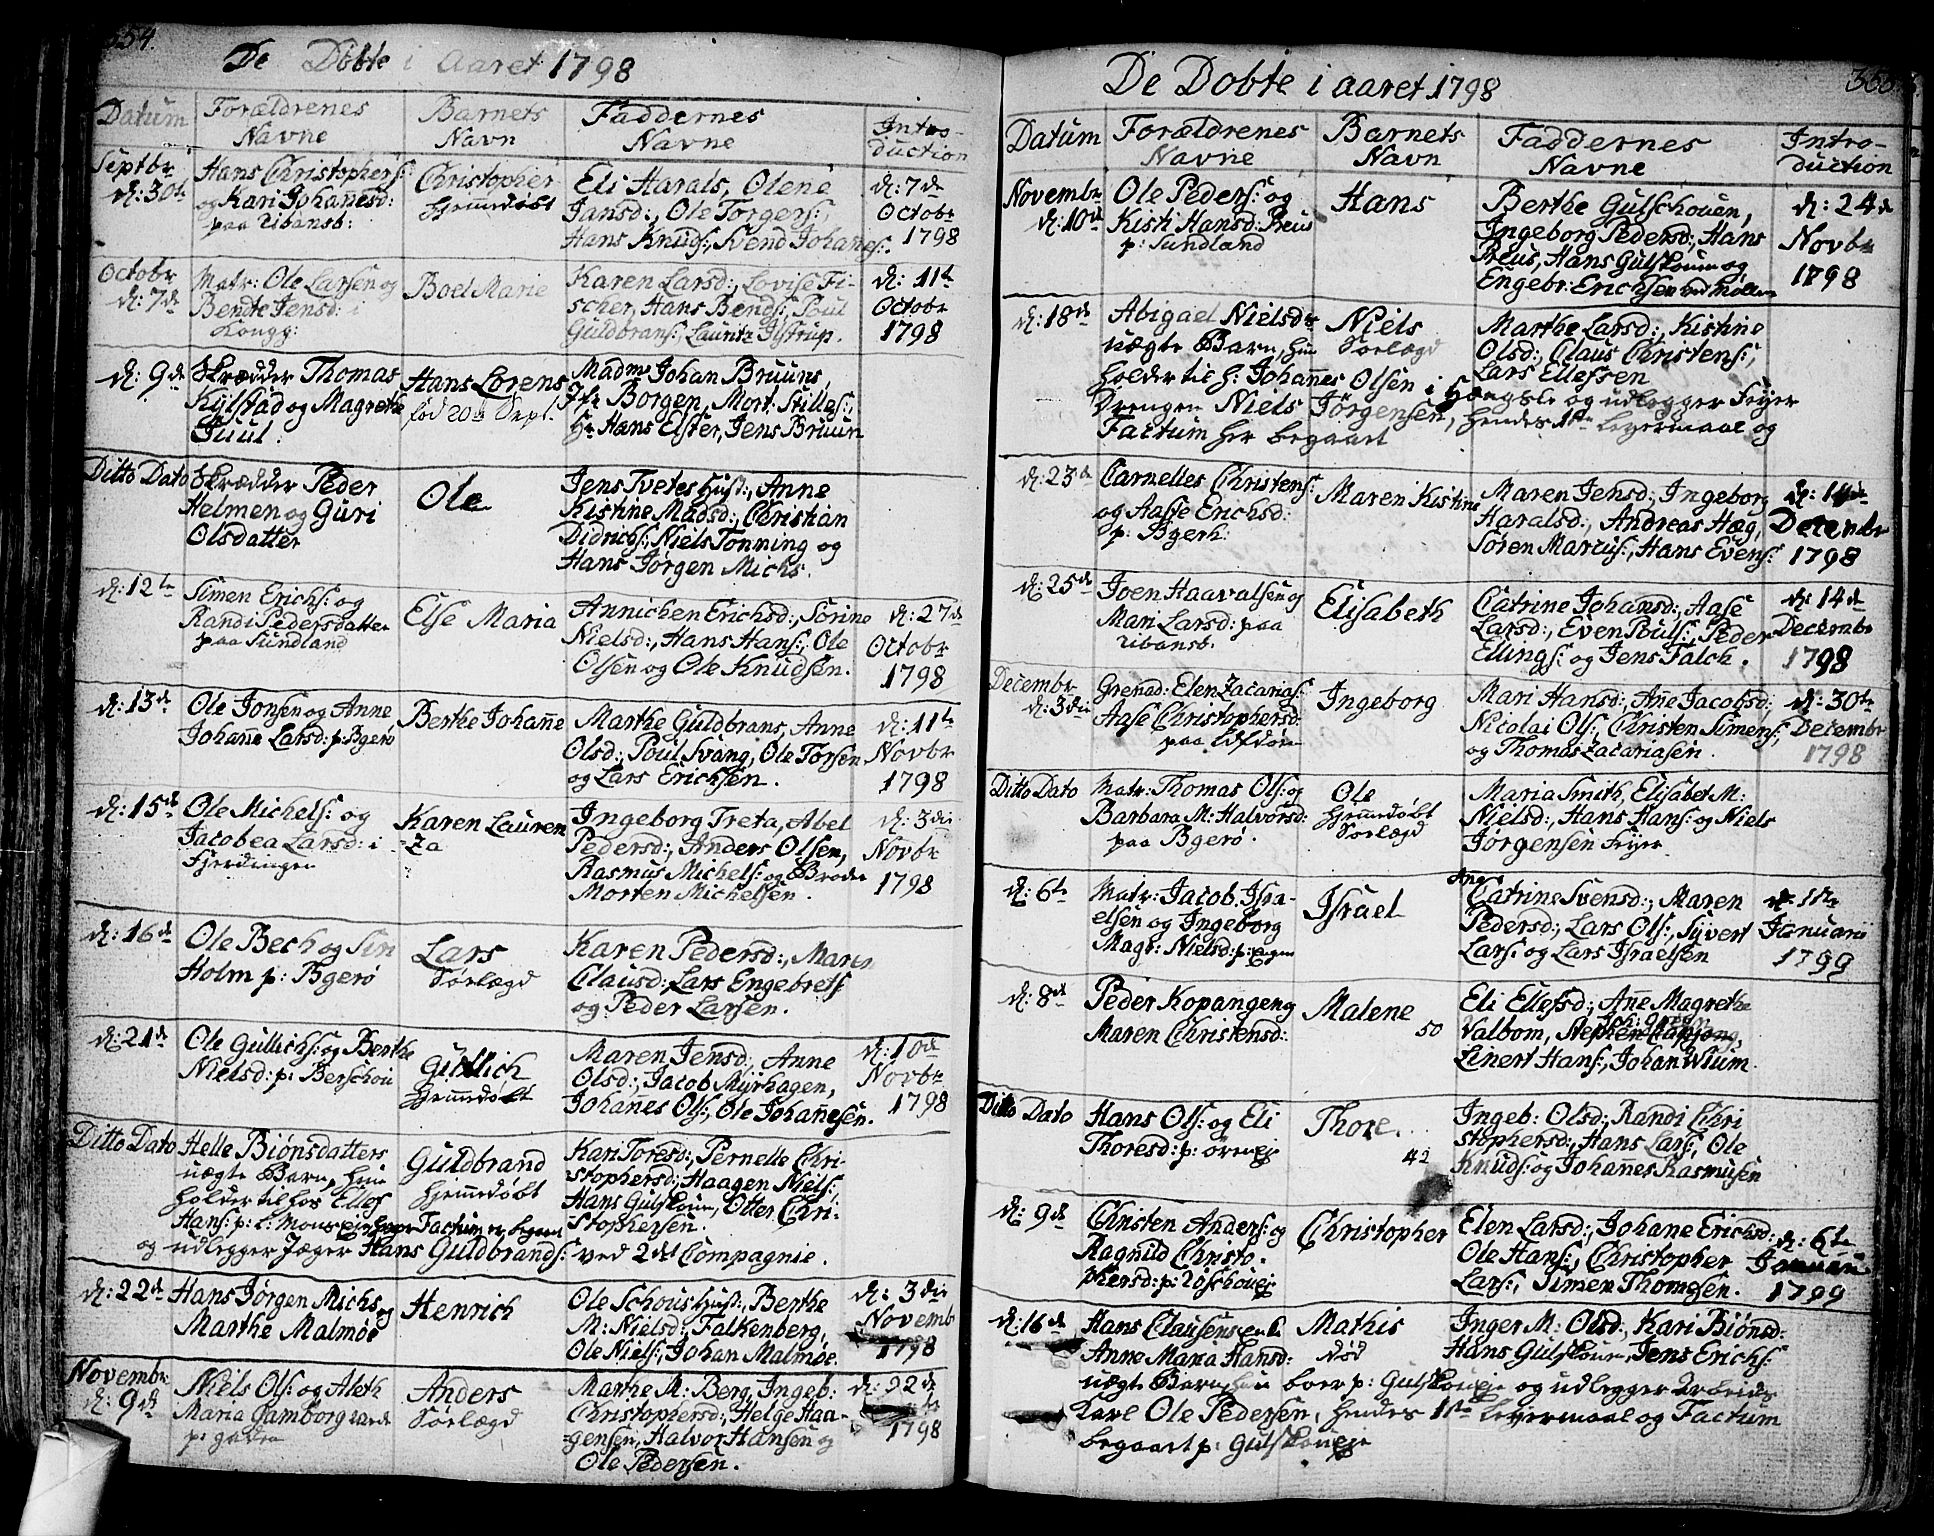 354.
De Döbte i Aaret 1798
Datum
Forældrenes
Navne
Barnets
Navn
Faddernes
Navne
Intro-
duction
Septbr
d: 30te
Hans Christophers:
og Kari Johannesd:
paa
Christopher
Hjemmdøbt
Eli Harals, Olene
Jansd:, Ole Torgers:,
Hans Knuds:, Svend Johanes:.
d: 7de
Octobr
1798
Octobr
d: 7de
Matr: Ole Larsen og
Bendte Jensd: i
Boel Marie
Karen Larsd:, Lovise Fi-
scher, Hans Bends:, Poul
Guldbrans:, Lauritz Istrup.
d: 11te
Octobr
1798
d: 9de
Skrædder Thomas
Kylstad og Magrethe
Juul.
Hans Lorens
fød 20de Sept.
Madm Johan Bruuns,
Jfr Borgen, Mort: Stilles:,
Hr Hans Elster, Jens Bruun
Ditto Dato
Skrædder Peder
Helmen og Guri
Olsdatter
Ole
Jens Tvetes Hust:, Anne
Kistine Madsd:, Christian
Didrichs:, Niels Tonning og
Hans Jørgen Michs.
d: 12te
Simen Erichs: og
Randi Pedersdatter
paa Sundland
Else Maria
Annichen Erichsd:, Sorine
Nielsd:, Hans Hans:, Ole
Olsen og Ole Knudsen.
d: 27de
Octobr
1798
d: 13de
Ole Jonsen og Anne
Johanne Larsd: p: Bgerø
Berthe Johanne
Marthe Guldbrans, Anne
Olsd:, Poul Svang, Ole Torsen
og Lars Erichsen.
d: 11te
Novbr
1798
d: 15de
Ole Michels: og
Jacobea Larsd: i
Fjerdingen
Karen Lauren
-za
Ingeborg Treta, Abel
Pedersd:, Anders Olsen,
Rasmus Michels: og Broder
Morten Michelsen.
d: 3die
Novbr
1798
d: 16de
Ole Bech og Siri
Holm p: Bgerø
Lars
Sørlægd
Karen Pedersd:, Maren
Clausd:, Lars Engebrets:
og Peder Larsen.
d: 21de
Ole Gullichs: og Berthe
Nielsd: p: Berschou
Gullich
Hjemmdøbt
Maren Jensd:, Anne
Olsd:, Jacob Murhagen,
Johannes Ols:, Ole Johannesen.
d: 10de
Novbr
1798
Ditto Dato
Helle Biønsdatters
uægte Barn, hun
holder til hos Ellef
Hans: p: L: har Factum er begaaet
og udlegger Jæger Hans Guldbrands: ved 2det Compagnie.
Guldbrand
Hjemmdøbt
Kari Toresd:, Pernelle Chri-
stophersd:, Haagen Niels:,
Hans Gulskoun, Otter Chri-
stophersen.
d: 22de
Hans Jørgen Michs og
Marthe Malmøe
Henrich
Ole Schous Hust:, Berthe
M: Nielsd:, Falkenberg,
Ole Niels:, Johan Malmøe.
d: 3die
Novembr
1798
Novembr
d: 9de
Niels Ols: og Aleth
Maria Gamborg
p:
Anders
Sørlægd
Marthe M: Berg, Ingeb:
Christophersd:, Helge Haa-
gensen, Halvor Hansen og
Ole Pedersen.
d: 22de
1798
De Dobte i aaret 1798
Datum
Forældrenes
Navne
Barnets
Navn
Faddernes
Navne
Intro-
duction
Novembr
d: 10de
Ole Peders: og
Kisti Hansd: Preus
p: Sundland
Hans
Berthe Gulschouen,
Ingeborg Pedersd:, Hans
Preus, Hans Gulskoun og
Engebr: Erichsen ved Møllen
d: 24de
Novbr
1798
d: 18de
Abigael Nielsdrs
uægte Barn, hun
holder til h: Johannes Olsen i Hougsle og udlegger Fejer
Drengen Niels Jørgensen, hendes 1te Lejermaal og
Factum her begaaet
Niels
Sørlægd
Marthe Larsd:, Kistine
Olsd:, Claus Christens:,
Lars Ellefsen
d: 23de
Carnelles Christens:
og Aase Erichsd:
p: Bgerh:
Maren Kistine
Maren Jensd:, Ingeborg
Haralsd:, Andreas Hæg,
Søren Marcus:, Hans Evens:
Decembr
1798
d: 25de
Joen Haavalsen og
Mari Larsd: paa
Elisabeth
Catrine Johansd:, Aase
Larsd:, Even Pouls:, Peder
Ellings: og Jens Falch.
d: 14de
Decembr
1798
Decembr
d: 3die
Grenad: Elen Zacarias:
Aase Christophersd:
paa
Ingeborg
Mari Hansd:, Ane Jacobsd:,
Nicolai Ols:, Christen Simens:,
og Thomas Zacariasen.
d: 30te
Decembr
1798
Ditto Dato
Matr: Thomas Ols: og
Barbara M: Halvorsd:
paa Bgerø.
Ole
Hjemmdøbt
Sørlægd
Maria Smith, Elisabet M:
Nielsd:, Hans Hans: og Niels
Jørgensen Fejer
d: 6te
Matr: Jacob Isra-
elsen og Ingeborg
Magr: Nielsd: p:
Israel
Ane
Catrina Svensd:, Maren
Pedersd:, Lars Ols:, Syvert
Lars: og Lars Israelsen
d: 1te
Januarii
1799
d: 8de
Peder Kopangen og
Maren Christensd:
Malene
50
Eli Ellefsd:, Ane Magrethe
Valbom,
Linert Hans:, Johan Wium.
Ditto Dato
Hans Ols: og Eli
Thoresd: p:
Thore.
42
Ingeb: Olsd:, Randi Chri
stophersd:, Hans Lars:, Ole
Knuds: og Johannes Rasmusen
d: 9de
Christen Anders: og
Ragnild Christo-
phersd: p:
Christopher
Elen Larsd:, Johane Erichsd:
Ole Hans:, Christopher
Lars:, Simen Thomesen.
d: 6te
Januarii
1799
d: 16de
Hans Clausens enk
Anne Maria Hansd:
uægte Barn, hun boer p: Gulskouеje og udlegger Arbeids
Karl Ole Pedersen, hendes 1te Lejermaal og Factum
begaaet p: Gulskoueje
Mathis
død
Inger M: Olsd:, Kari Biønsd:
Hans Gulskoun, Jens Erichs: